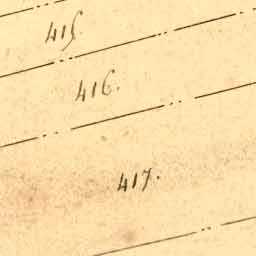 415.
416.
417.